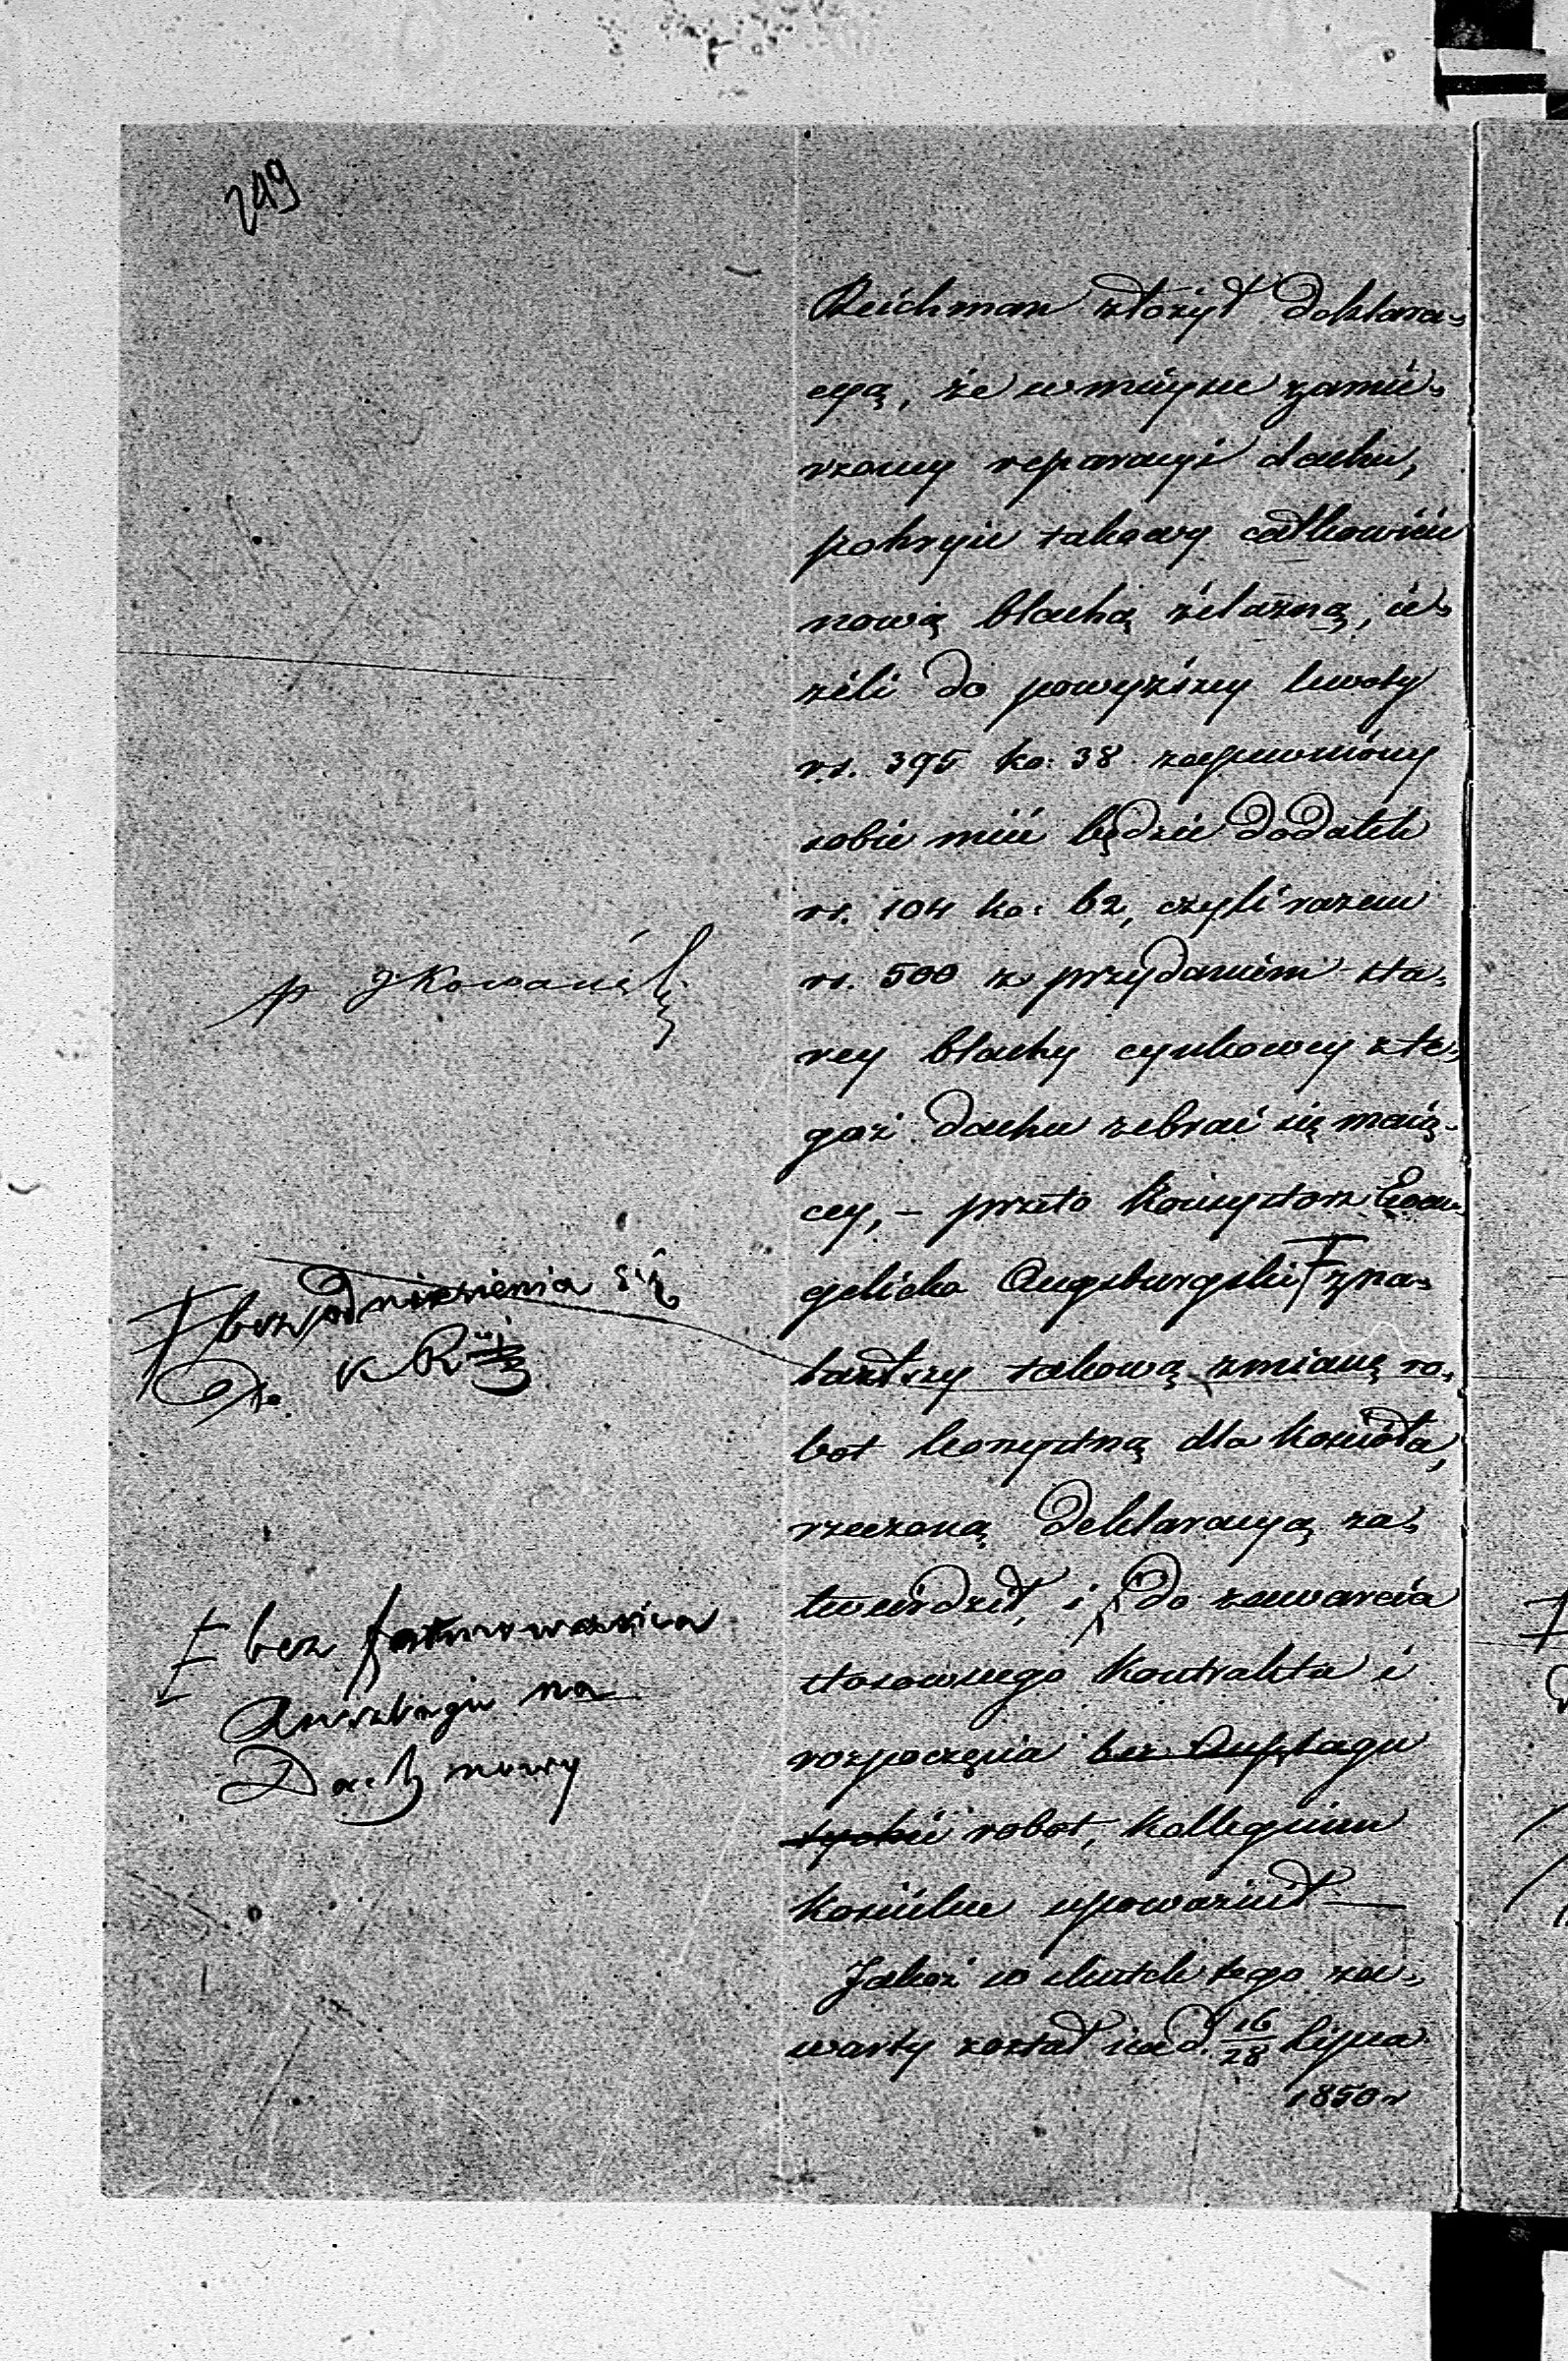 249
Reichman złożył deklara-
cyą, że w mieysce zamie-
rzoney reparacyi dachu,
pokryie takowy całkowicie
nową blachą żelazną, ie-
żéli do powyższey kwoty
rs. 395 ko: 38 zapewniony
sobie mieć będzie dodatek
rs. 104 ko: 62, czyli razem
rs. 500 z przydaniem sta-
rey blachy cynkowey z te-
goż dachu zebrać się maią-
cey, – przeto Konsystorz Ewan-
gelicko Augsburgski zna-
lazłszy takową zmianę ro-
bot korzystną dla kościoła,
rzeczoną deklaracyą za-
twierdził, i do zawarcia
stosownego kontraktu i
rozpoczęcia bez Anszlagu
robot, Kollegium
kościelne upoważnił —
Jakoż w skutek tego za-
warty został na d. 16/28 Lipca
1850 r
bez odniesienia się
do K R
bez formowania
Anszlagu na
Dach nowy